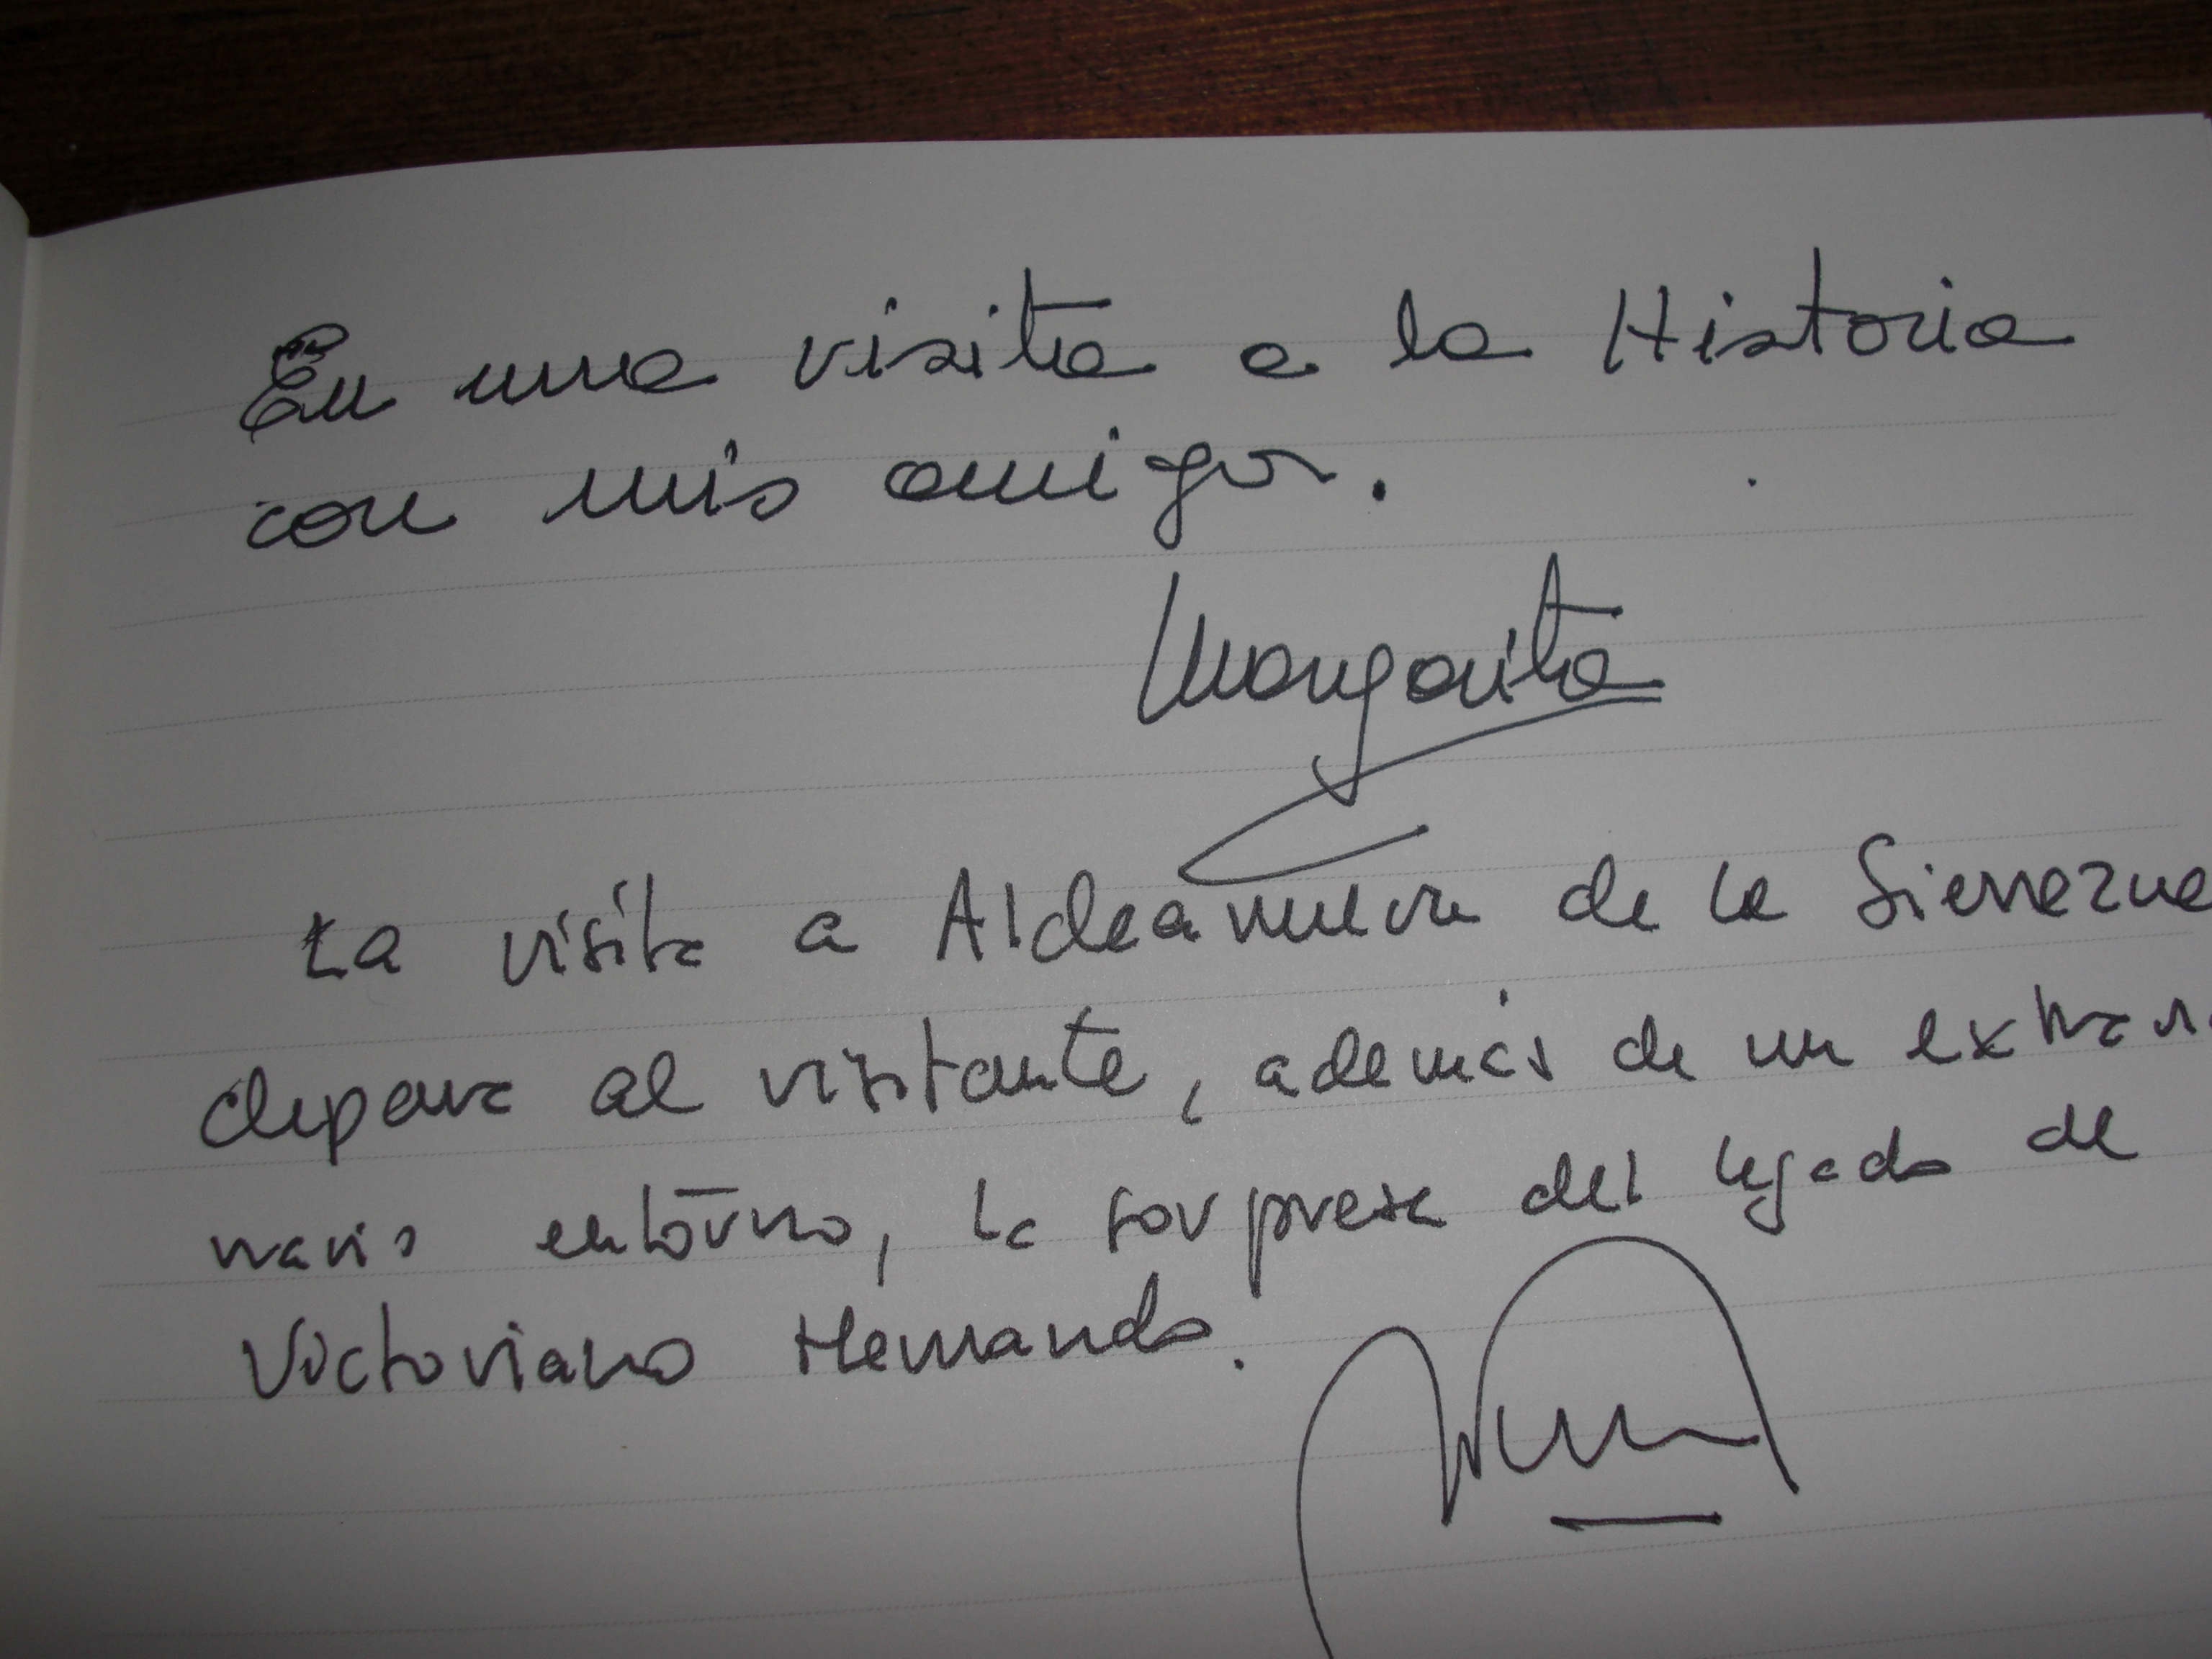 En una visita a la Historia
con mis amigos.
Margarita
La visita a Aldeanueva de la Serrezuela
depara al visitante, además de un extraor
nario entorno, la sorpresa del legado de
Victoriano Hernando.